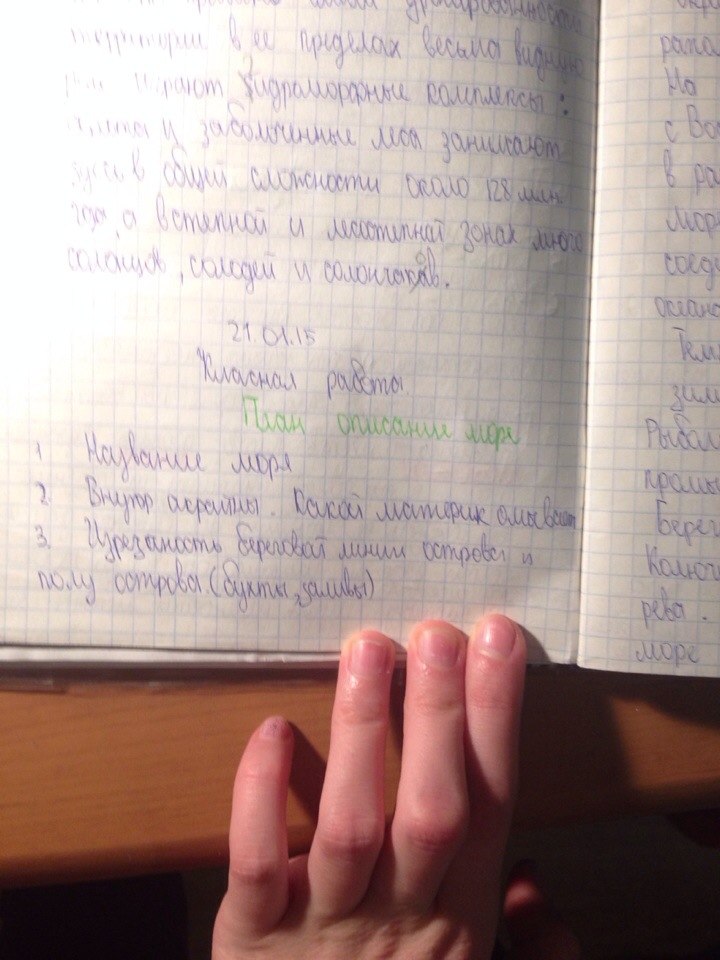 территории в ее пределах весьма видную
играют гидроморфные комплексы:
и заболоченные леса занимают
здесь в общей сложности около 128 млн.
га, а в степной и лесостепной зонах много
солонцов, солодей и солончаков.
21.01.15
Класная работа.
План описание моря
1 Название моря
2. Внутр окраины. Какой материк омывает
3. Изрезаность береговой линии острова и
полу острова (бухты, заливы)
На
с Вос
в ра
океано
Тем
Рыбал
Берег
Колюч
рева.
море